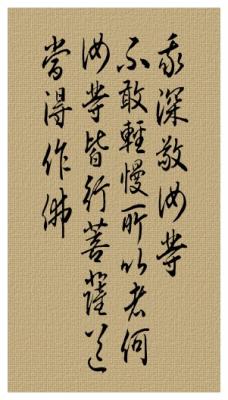 我深敬汝等
不敢輕慢所以者何
汝等皆行菩薩道
當得作佛